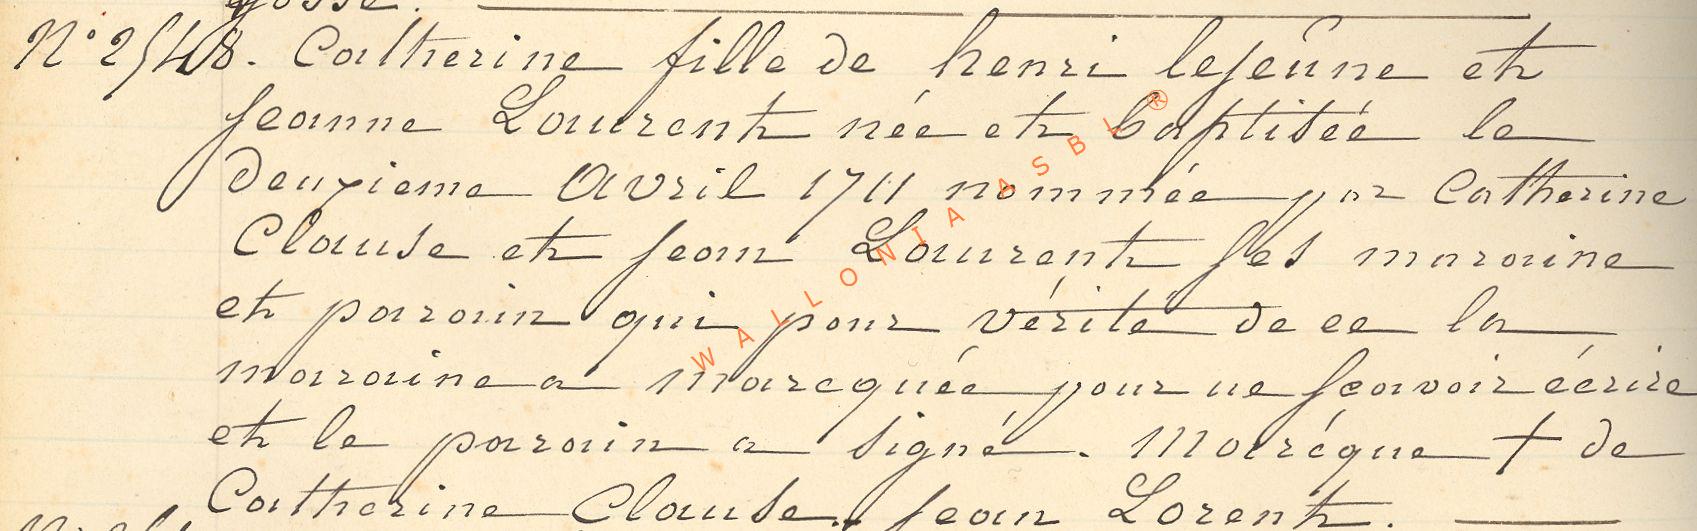 gosse.
N° 2548. Catherine fille de henri lejeûne et
jeanne Laurent née et baptisée le
deuxieme Avril 1711 nommée par Catherine
Clause et jean Laurent ses maraine
et parain qui pour vérité de ce la
maraine a marcquée pour ne scavoir écrire
et le parain a signé. Marcque + de
Catherine Clause.. jean Lorent.
WALLONIA ASBL ®